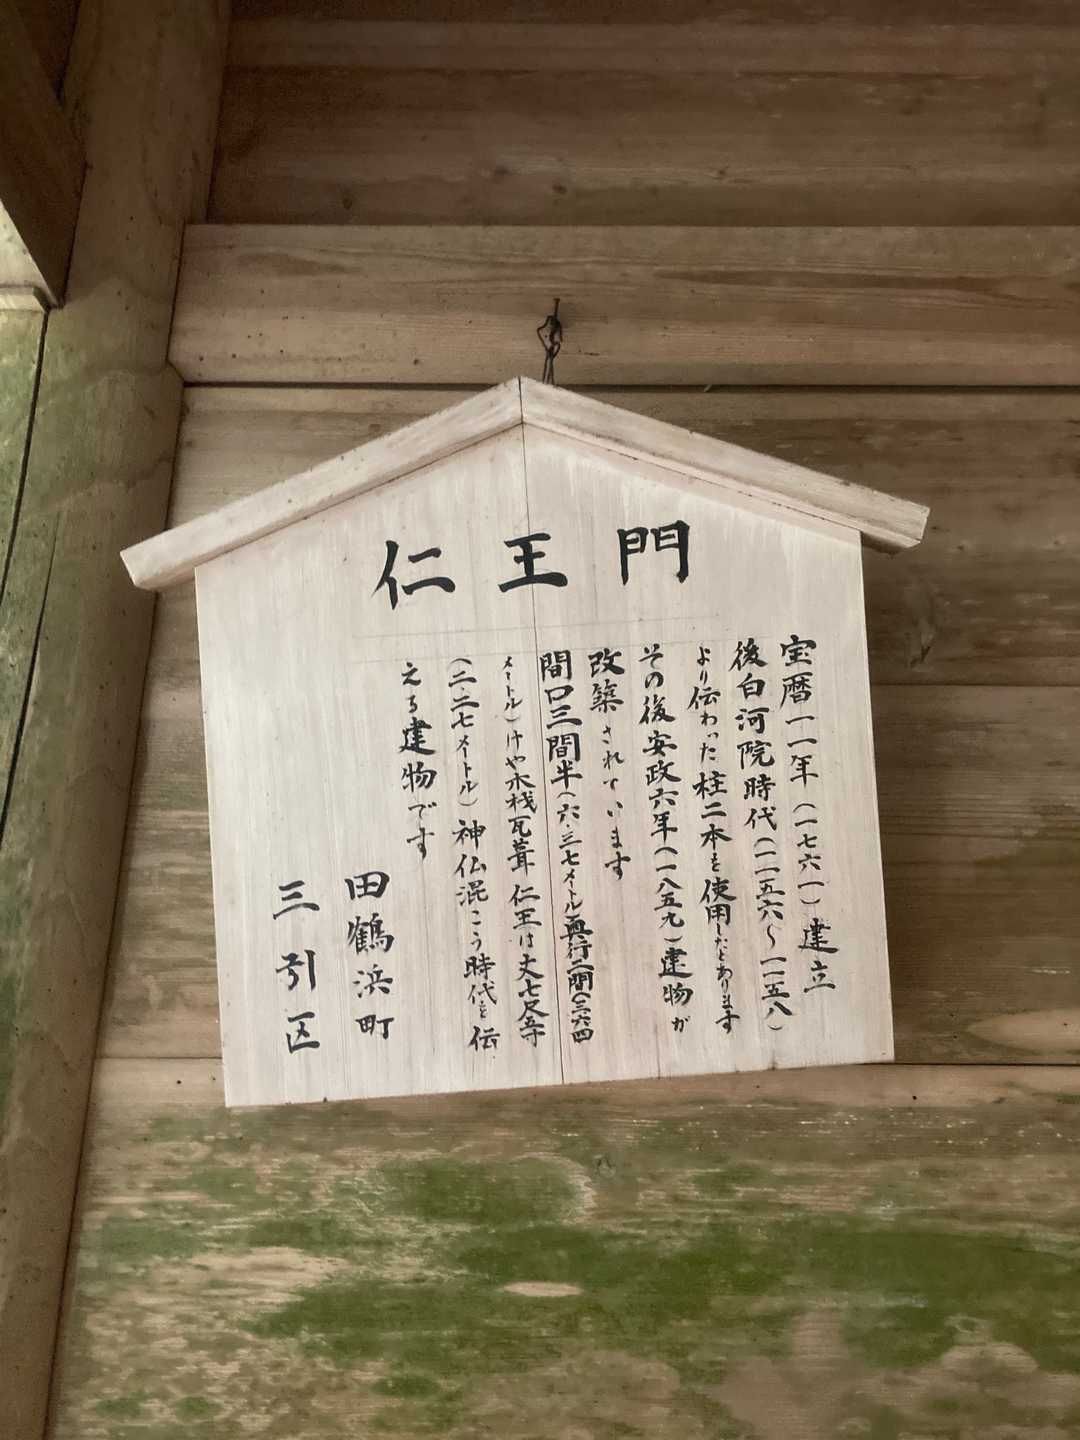 仁王門
宝暦一一年(一七六一)建立
後白河院時代(一一五六〜一一五八)
より伝わった柱二本を使用したとあります
その後安政六年(一八五九)建物が
改築されています
間口三間半(六.三七メートル)奥行二間(三.六四
メートル)けや木桟瓦葺 仁王は丈七尺五寸
(二.二七メートル)神仏混こう時代を伝
える建物です
田鶴浜町
三引区